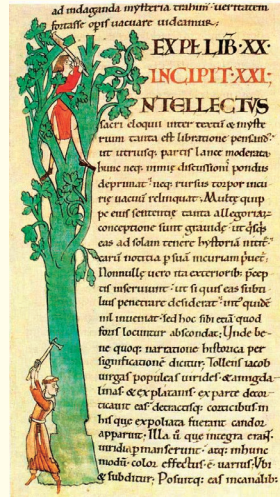 ad indaganda mysteria trahim᷒ ueritatem
fortasse op̃is uacuare uideamur;
EXPL̃ LIB̃·XX·
INCIPIT·XXI·
NTELLECTVS
sacri eloquii inter textũ & myste
rium tanta est libratione pensand᷒·
ut utriusq; partis lance moderata·
hunc neq; nimię discussionis pondus
deprimat· neq; rursus torpor incu
rię uacuũ relinquat. Multę quip
pe ei᷒ sententię tanta allegoriarũ
conceptione sunt grauidę· ut q̃sq̃s
eas ad solam tenere hystoriã nitit̃·
earũ notitia p suã incuriam p̃uet̃;
Nonnullę uero ita exteriorib; p̃cep
tis inseruiunt· ut si quis eas subti
lius penetrare desiderat· int᷒ quidẽ
nil inueniat· sed hoc sibi etiã quod
foris locuntur abscondat; Unde be
ne quoq; narratione historica per
significationẽ dicitur; Tollens iacob
uirgas populeas uirides· & amigda
linas· & ex platanis· ex parte decor
ticauit eas· detractisq; corticibus in
his que expoliata fuerant candor
apparuit; Illa ũ que integra erãt·
uiridia p̃manserunt· atq; in hunc
modũ color effectus·ẽ· uarius; Vbi
& subditur; Posuitq; eas incanalib;